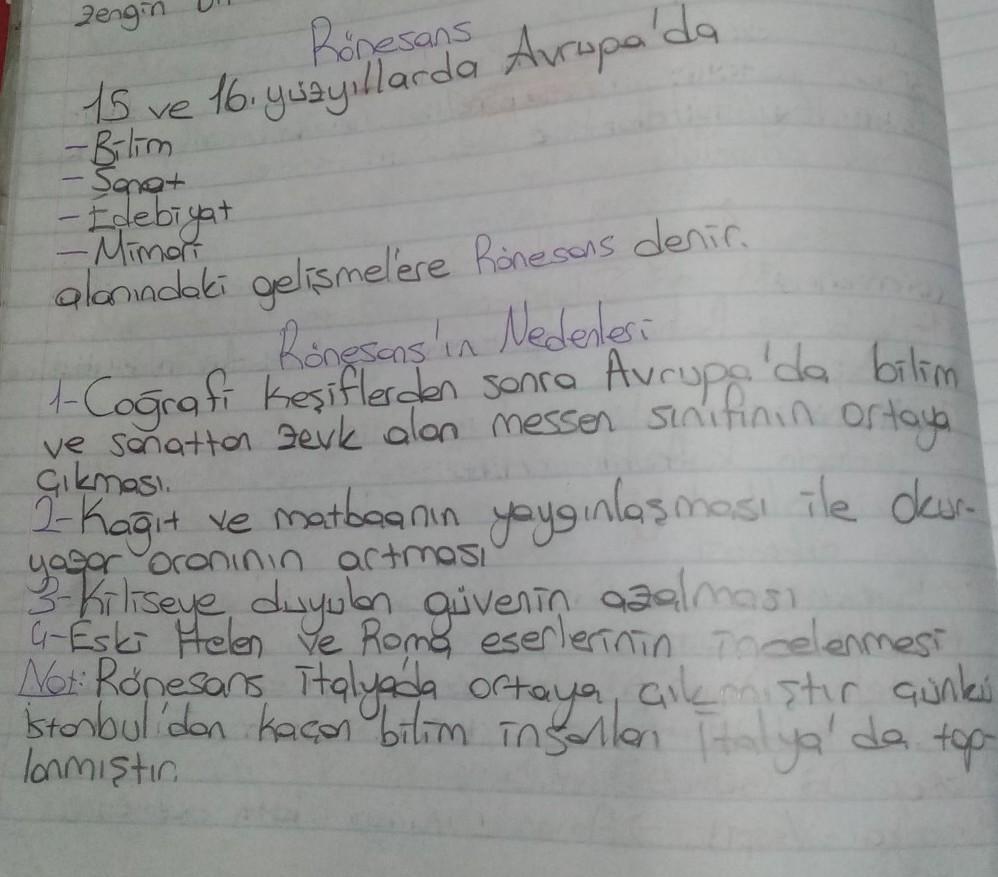 zengin
Rönesans
15 ve 16. yüzyıllarda Avrupa'da
- Bilim
- Sanat
- Edebiyat
- Mimari
alanındaki gelişmelere Rönesans denir.
Rönesans'ın Nedenleri
1- Coğrafi Keşiflerden sonra Avrupa'da bilim
ve sanattan zevk alan messen sınıfının ortaya
çıkması.
2- Kağıt ve matbaanın yaygınlaşması ile okur-
yazar oranının artması
3- Kiliseye duyulan güvenin azalması
4- Eski Helen ve Roma eserlerinin incelenmesi
Not: Rönesans İtalyada ortaya çıkmıştır çünkü
İstanbul'dan kaçan bilim insanları İtalya'da top-
lanmıştır.